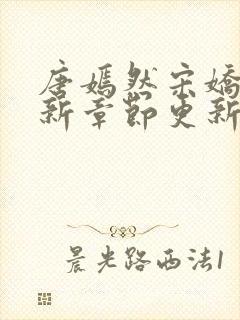 唐嫣然宋嬌
新章節更新
晨光路西法1